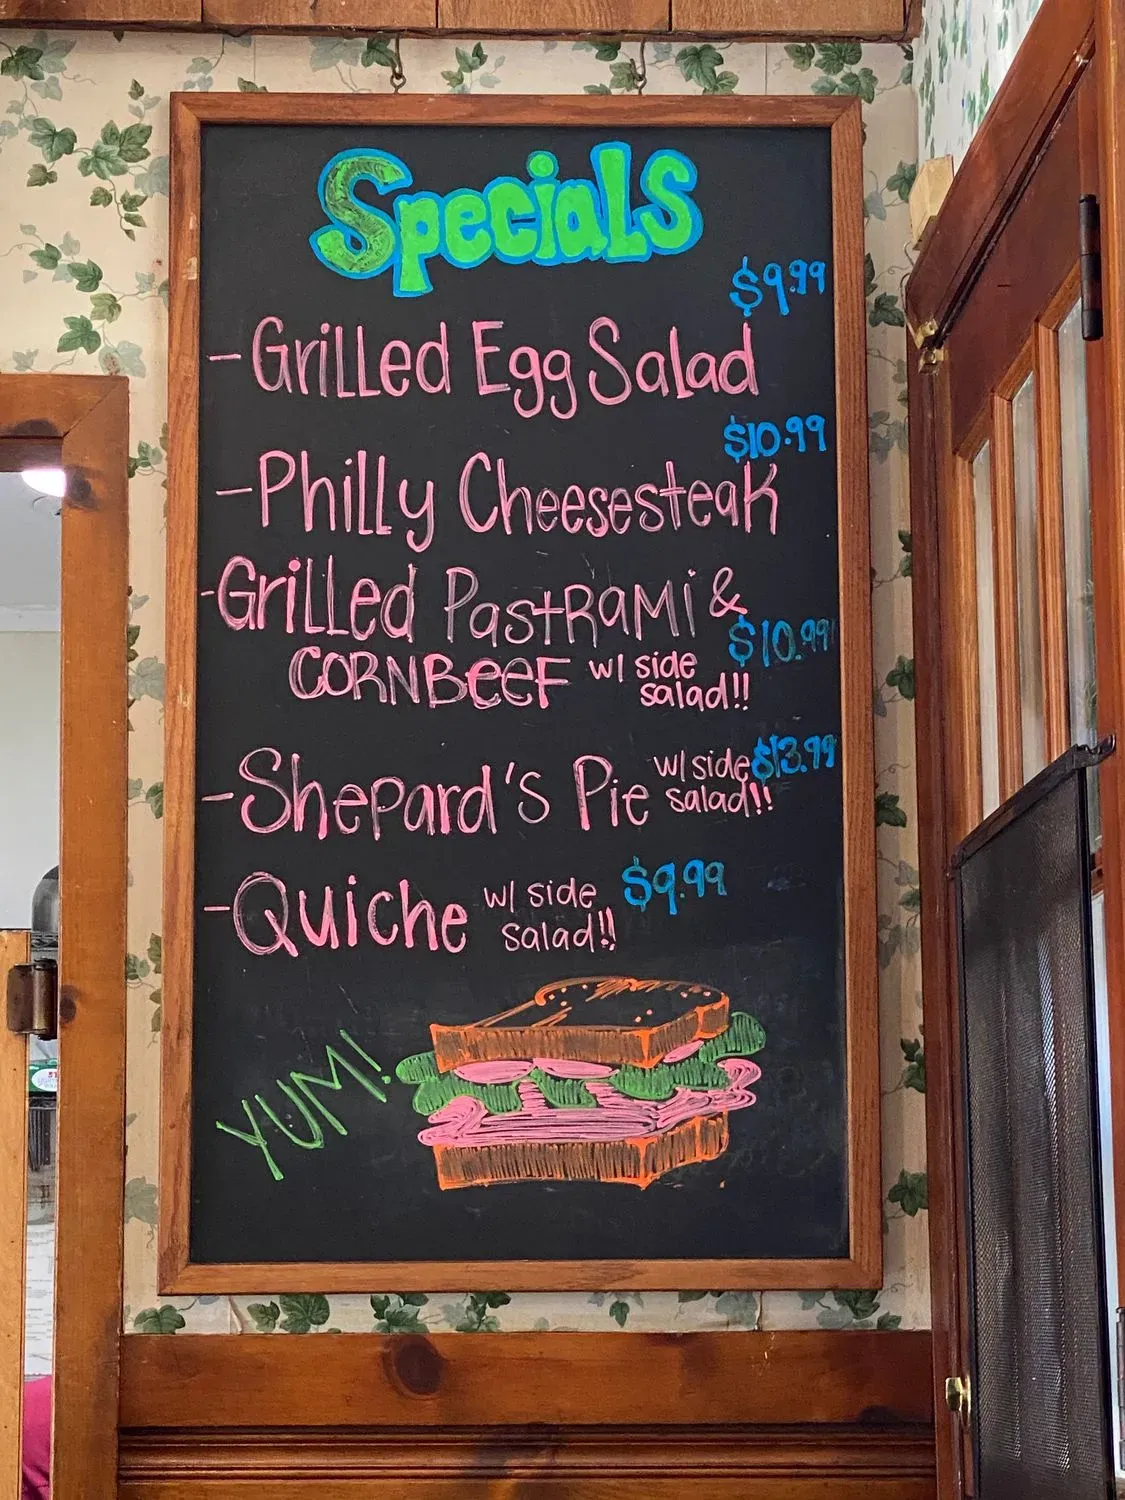 Specials
$9.99
-Grilled Egg Salad
$10.99
-Philly Cheesesteak
-Grilled Pastrami &
$10.99
CORNBEEF w/ side
salad!!
-Shepard's Pie w/ side $13.99
salad!!
-Quiche w/ side $9.99
salad!!
YUM!